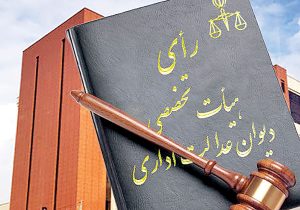 رأی
هیأت تخصصی
دیوان عدالت اداری